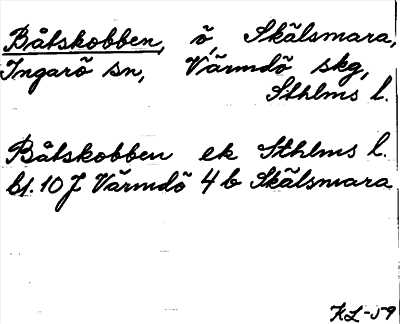 Båtskobben, ö, Skälsmara,
Ingarö sn, Värmdö skg,
Sthlms l.
Båtskobben ek Sthlms l.
bl. 10 J Värmdö 4 b Skälsmara
KL-59